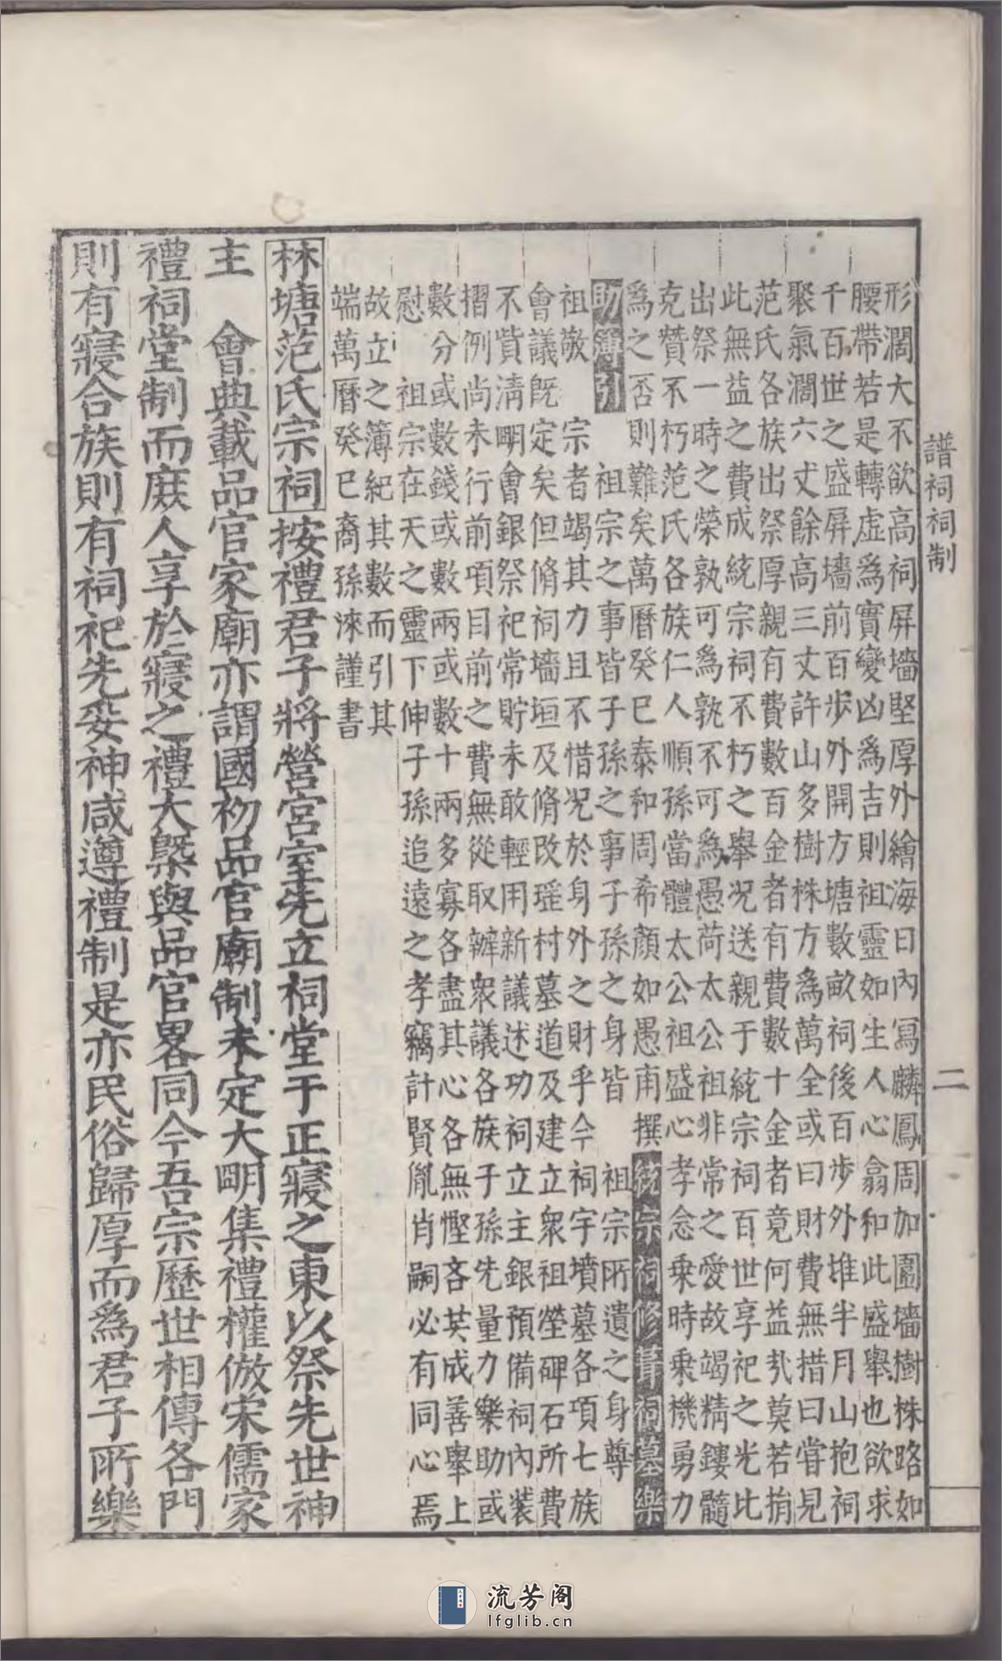 譜祠祠制
二
形濶大不欲高祠屏墻堅厚外繪海日內冩麟鳳周加圍墻樹株路如
腰帶若是轉虛爲實變凶爲吉則祖靈如生人心翕和此盛舉也欲求
千百世之盛屏墻前百步外開方塘數畝祠後百步外堆半月山抱祠
聚氣濶六丈餘高三丈許山多樹株方爲萬全或曰財費無措曰嘗見
范氏各族出祭厚親有費數百金者有費數十金者竟何益㢤莫若捐
此無益之費成統宗祠不朽之舉况送親于統宗祠百世享祀之光比
出祭一時之榮孰可爲孰不可爲愚荷太公祖非常之愛故竭精鏤髓
克贊不朽范氏各族仁人順孫當體太公祖盛心孝念乗時乗機勇力
爲之否則難矣萬曆癸巳泰和周希顔如愚甫撰
統宗祠修葺祠墓樂
助簿引
祖宗之事皆子孫之事子孫之身皆
祖宗所遺之身尊
祖敬
宗者竭其力且不惜况於身外之財乎今祠宇墳墓各項七族
會議旣定矣但脩祠墻垣及脩改瑶村墓道及建立衆祖塋碑石所費
不貲淸明會銀祭祀常貯未敢輕用新議述功祠立主銀預備祠內裝
摺例尚未行前項目前之費無從取辦衆議各族子孫先量力樂助或
數分或數錢或數兩或數十兩多寡各盡其心各無慳吝共成善舉上
慰
祖宗在天之靈下伸子孫追遠之孝竊計賢胤肖嗣必有同心焉
故立之簿紀其數而引其
端萬曆癸巳裔孫淶謹書
林塘范氏宗祠
按禮君子將營宮室先立祠堂于正寢之東以祭先世神
主
會典載品官家廟亦謂國初品官廟制未定大明集禮權倣宋儒家
禮祠堂制而庶人享於寢之禮大槩與品官畧同今吾宗歷世相傳各門
則有寢合族則有祠祀先妥神咸遵禮制是亦民俗歸厚而爲君子所樂
流芳阁
lfglib.cn